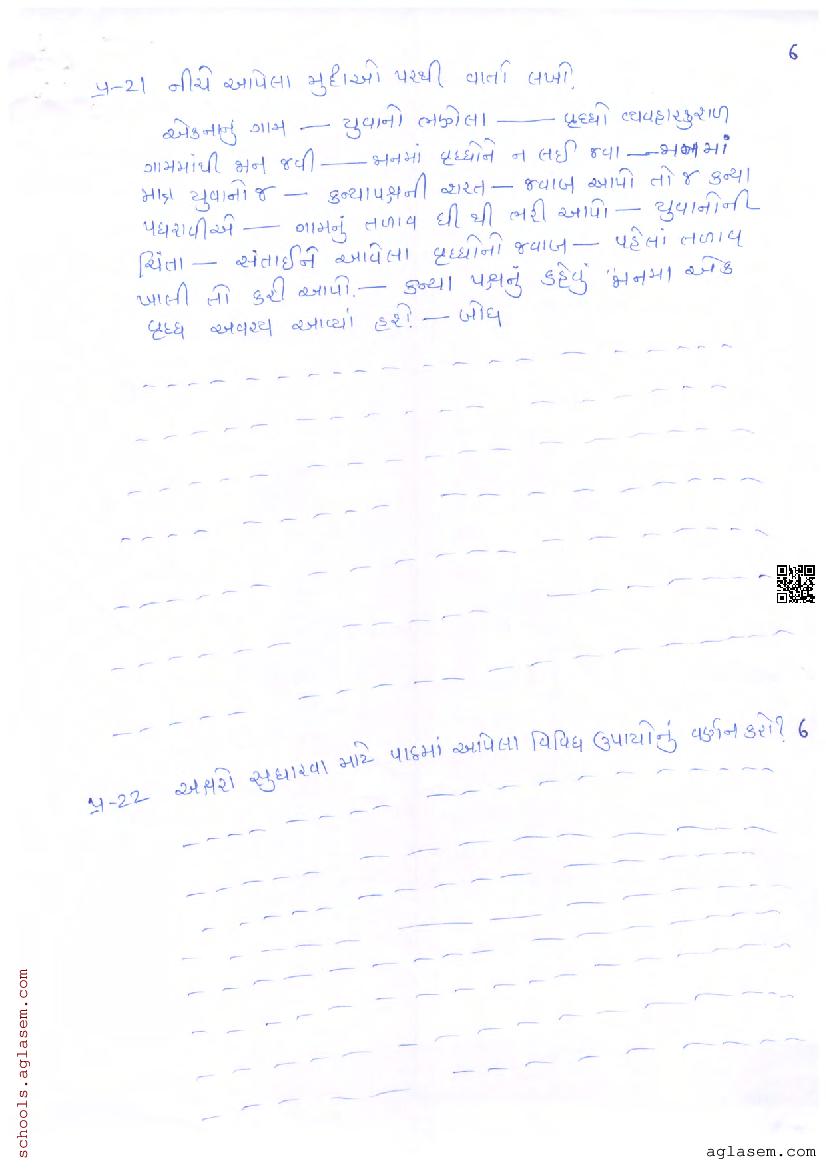 6
પ્ર-21 નીચે આપેલા મુદ્દાઓ પરથી વાર્તા લખો.
એકનાનું ગામ — યુવાનો ભણેલા — વૃધ્ધો વ્યવહારકુશળ
ગામમાંથી જાન જવી — જાનમાં વૃધ્ધોને ન લઈ જવા — જાનમાં
માત્ર યુવાનો જ — કન્યાપક્ષની શરત — જવાબ આપો તો જ કન્યા
પધરાવીએ — ગામનું તળાવ ઘી થી ભરી આપો — યુવાનોની
ચિંતા — સંતાઈને આવેલા વૃધ્ધોનો જવાબ — પહેલાં તળાવ
ખાલી તો કરી આપો. — કન્યા પક્ષનું કહેવું "જાનમા એક
વૃધ્ધ અવશ્ય આવ્યાં હશે. — બોધ
પ્ર-22 અક્ષરો સુધારવા માટે પાઠમાં આપેલા વિવિધ ઉપાયોનું વર્ણન કરો? 6
schools.aglasem.com
aglasem.com